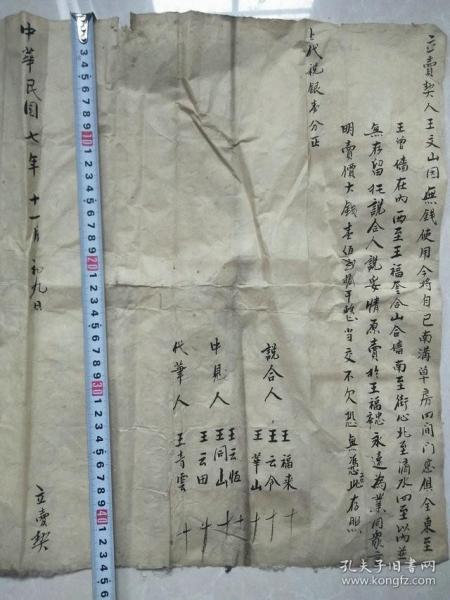 立賣契人王文山因無錢使用今将自己南溝草房四間门窓俱全東至
王曾墙在內西至王福 合山合墙南至街心北至滴水四至以內並
無存留托說合人說妥情原賣於王福 永遠為業同衆言
明賣價大錢 百 吊 整當交不欠恐無憑此存照
上代銀 分正
說合人 王福来 十
王云 十
王華山 十
中見人 王云恆 十
王同山 十
王云田 十
代筆人 王青雲 十
中華民國七年十一月初九日
立賣契
10
20
30
40
孔夫子旧书网